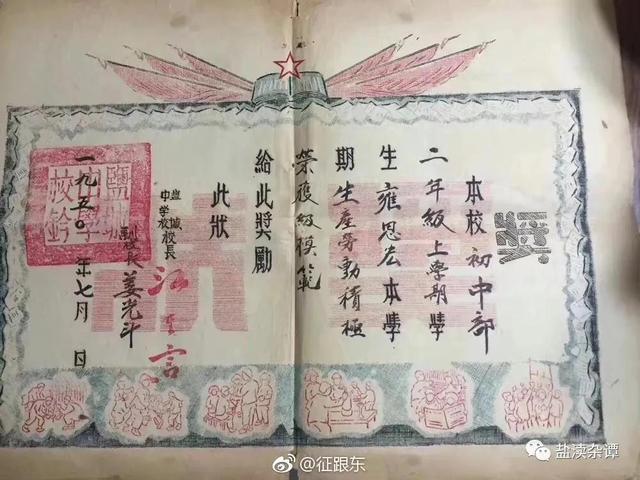 本校初中部
二年級上學期學
生雍恩宏本學
期生產勞動積極
榮獲級模範
給此獎勵
此狀
盐城
中学校校長
江言
副校長姜光斗
一九五〇年七月 日
鹽城
中學
校鈐
@征跟东
盐渎杂谭